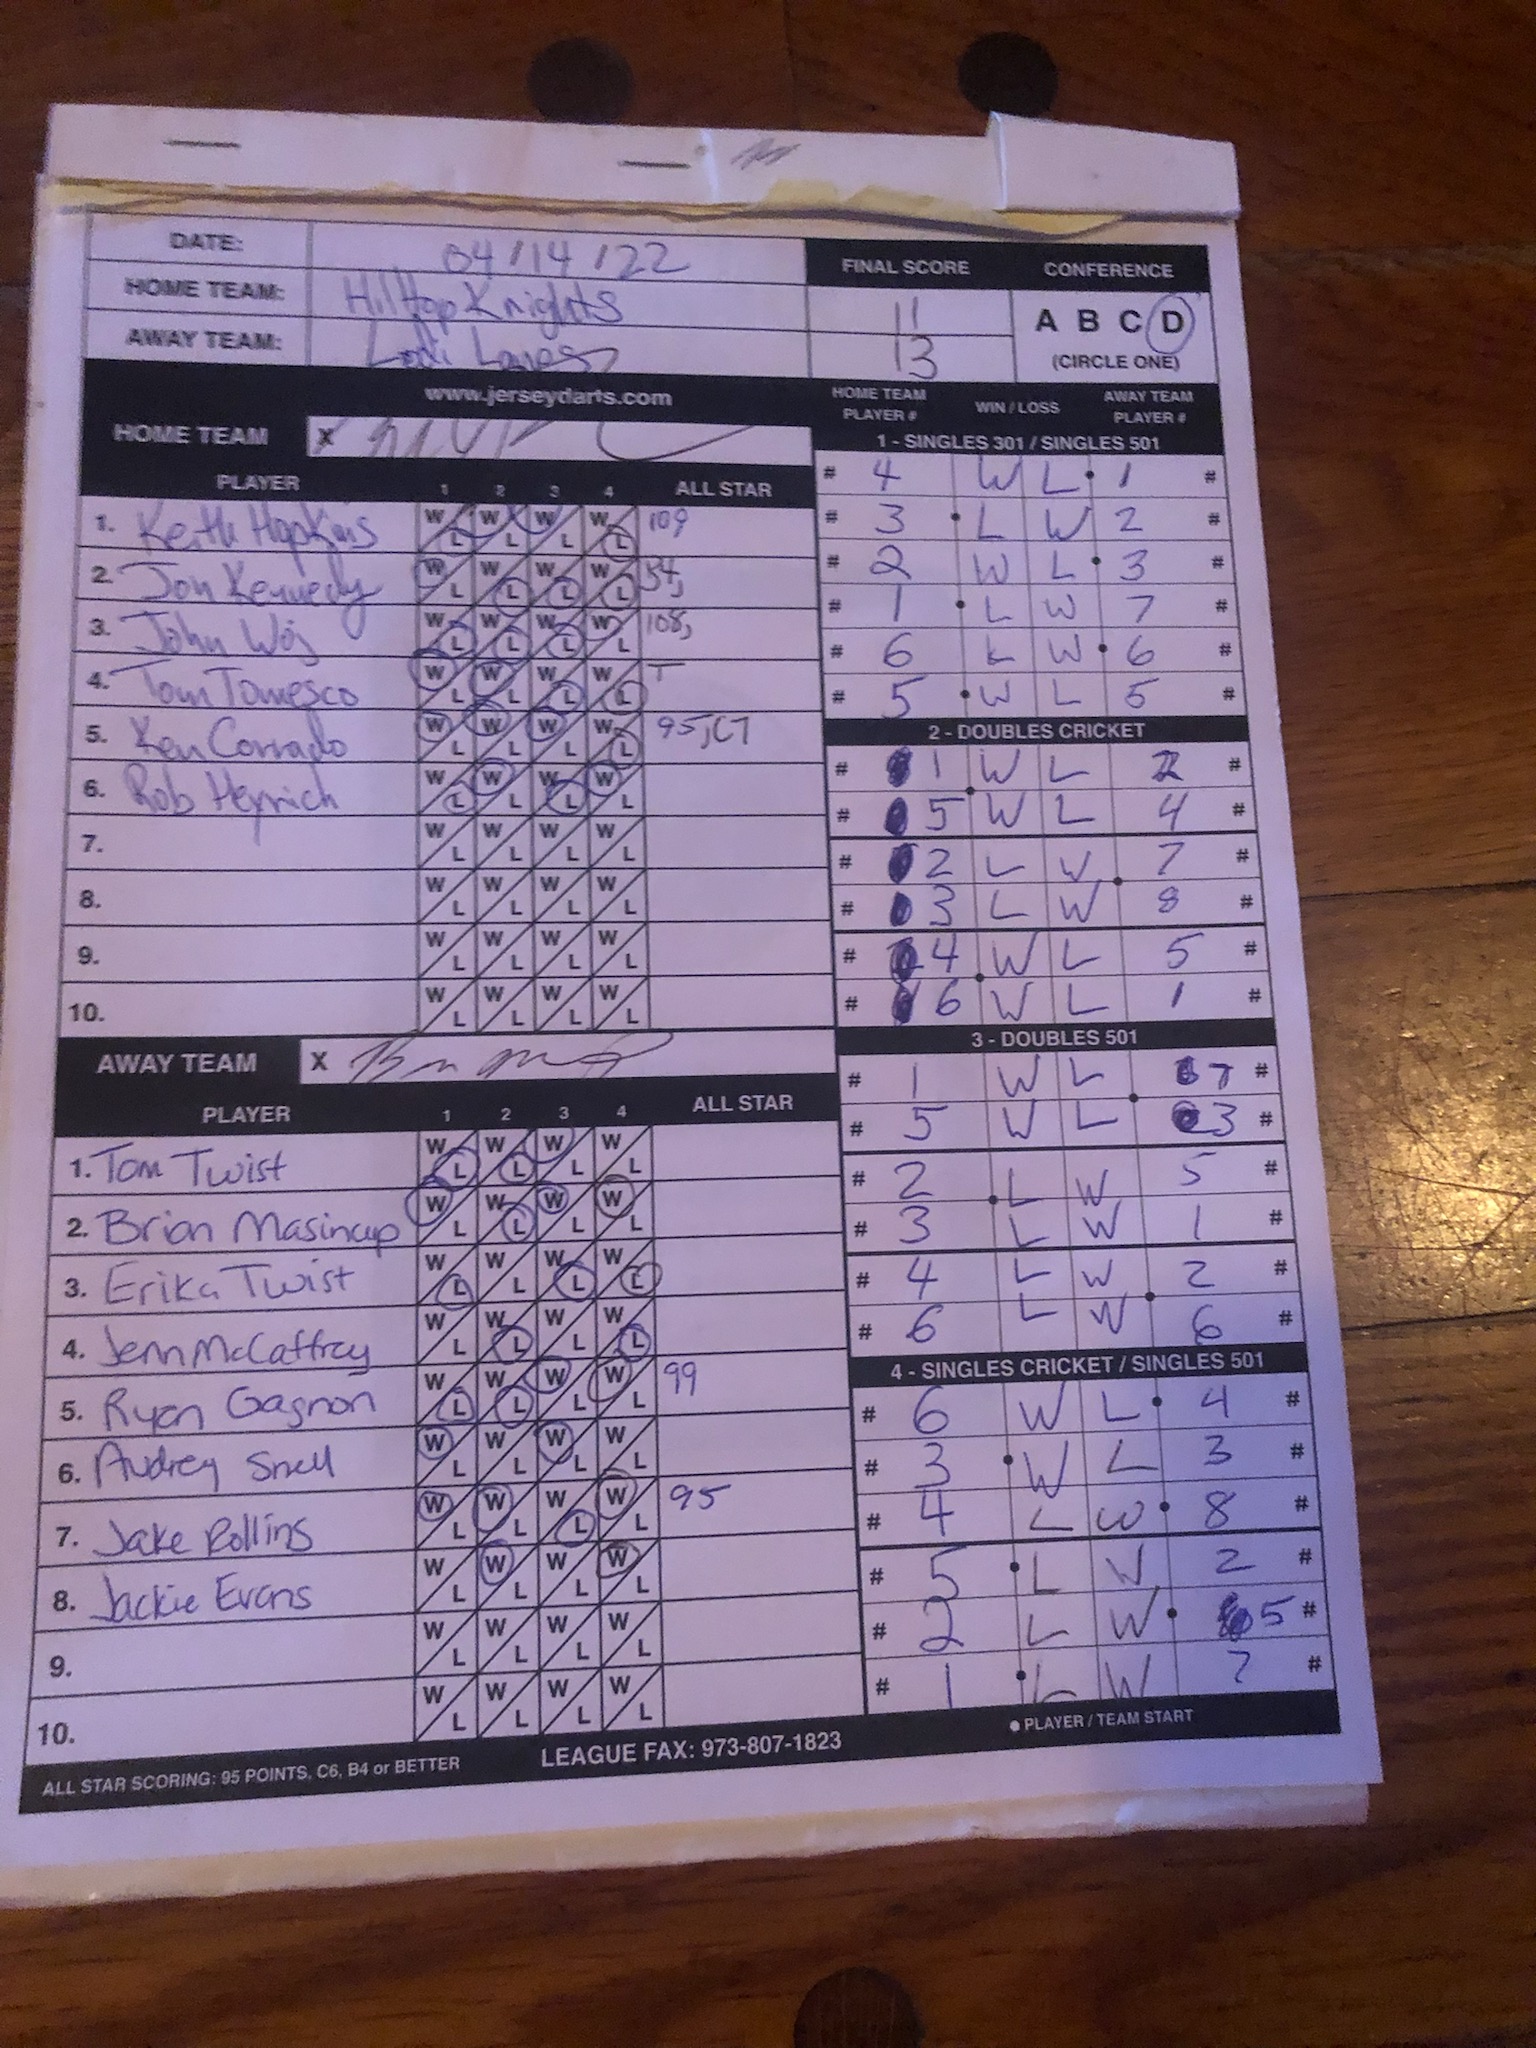 DATE: 04/14/22
HOME TEAM: Hilltop Knights
AWAY TEAM: Lodi Lanes
FINAL SCORE CONFERENCE
11
13
A B C D
(CIRCLE ONE)
www.jerseydarts.com
HOME TEAM X
PLAYER 1 2 3 4 ALL STAR
1. Keith Hopkins W L W L W L W L 109
2. Jon Kennedy W L W L W L W L
3. John Woj W L W L W L W L 108,
4. Tom Tomesco W L W L W L W L T
5. Ken Corrado W L W L W L W L 95, C7
6. Rob Heyrich W L W L W L W L
7. W L W L W L W L
8. W L W L W L W L
9. W L W L W L W L
10. W L W L W L W L
AWAY TEAM X
PLAYER 1 2 3 4 ALL STAR
1. Tom Twist W L W L W L W L
2. Brian Masincup W L W L W L W L
3. Erika Twist W L W L W L W L
4. Jenn McCaffrey W L W L W L W L
5. Ryan Gagnon W L W L W L W L 99
6. Audrey Snell W L W L W L W L
7. Jake Rollins W L W L W L W L 95
8. Jackie Evans W L W L W L W L
9. W L W L W L W L
10. W L W L W L W L
ALL STAR SCORING: 95 POINTS, C6, B4 or BETTER
LEAGUE FAX: 973-807-1823
HOME TEAM PLAYER # WIN / LOSS AWAY TEAM PLAYER #
1 - SINGLES 301 / SINGLES 501
# 4 W L 1 #
# 3 L W 2 #
# 2 W L 3 #
# 1 L W 7 #
# 6 L W 6 #
# 5 W L 5 #
2 - DOUBLES CRICKET
# 1 W L 2 #
# 5 W L 4 #
# 2 L W 7 #
# 3 L W 8 #
# 4 W L 5 #
# 6 W L 1 #
3 - DOUBLES 501
# 1 W L 7 #
# 5 W L 3 #
# 2 L W 5 #
# 3 L W 1 #
# 4 L W 2 #
# 6 L W 6 #
4 - SINGLES CRICKET / SINGLES 501
# 6 W L 4 #
# 3 W L 3 #
# 4 L W 8 #
# 5 L W 2 #
# 2 L W 5 #
# 1 L W 7 #
● PLAYER / TEAM START